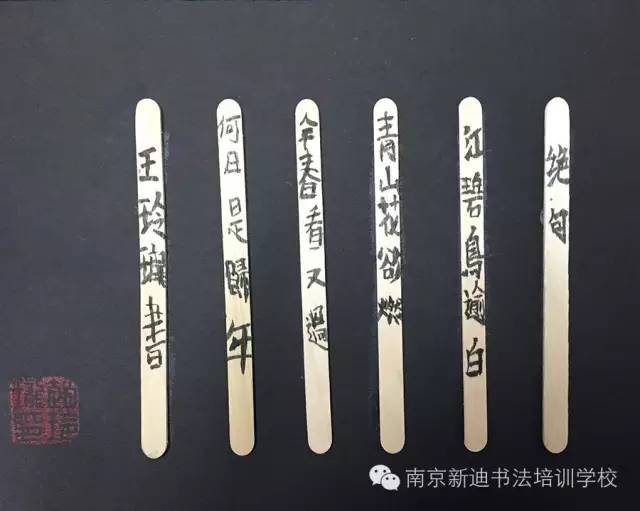 绝句
江碧鳥逾白
青山花欲燃
今春看又過
何日是歸年
王玲琬書
南京新迪书法培训学校